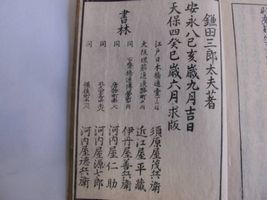 鎌田三郎太夫著
安永八己亥歳九月吉日
天保四癸巳歳六月求版
書林
江戸日本橋通壱丁目
須原屋茂兵衛
近江屋平蔵
同
伊丹屋善兵衛
同
河内屋仁助
同
河内屋源七郎
同
河内屋徳兵衛